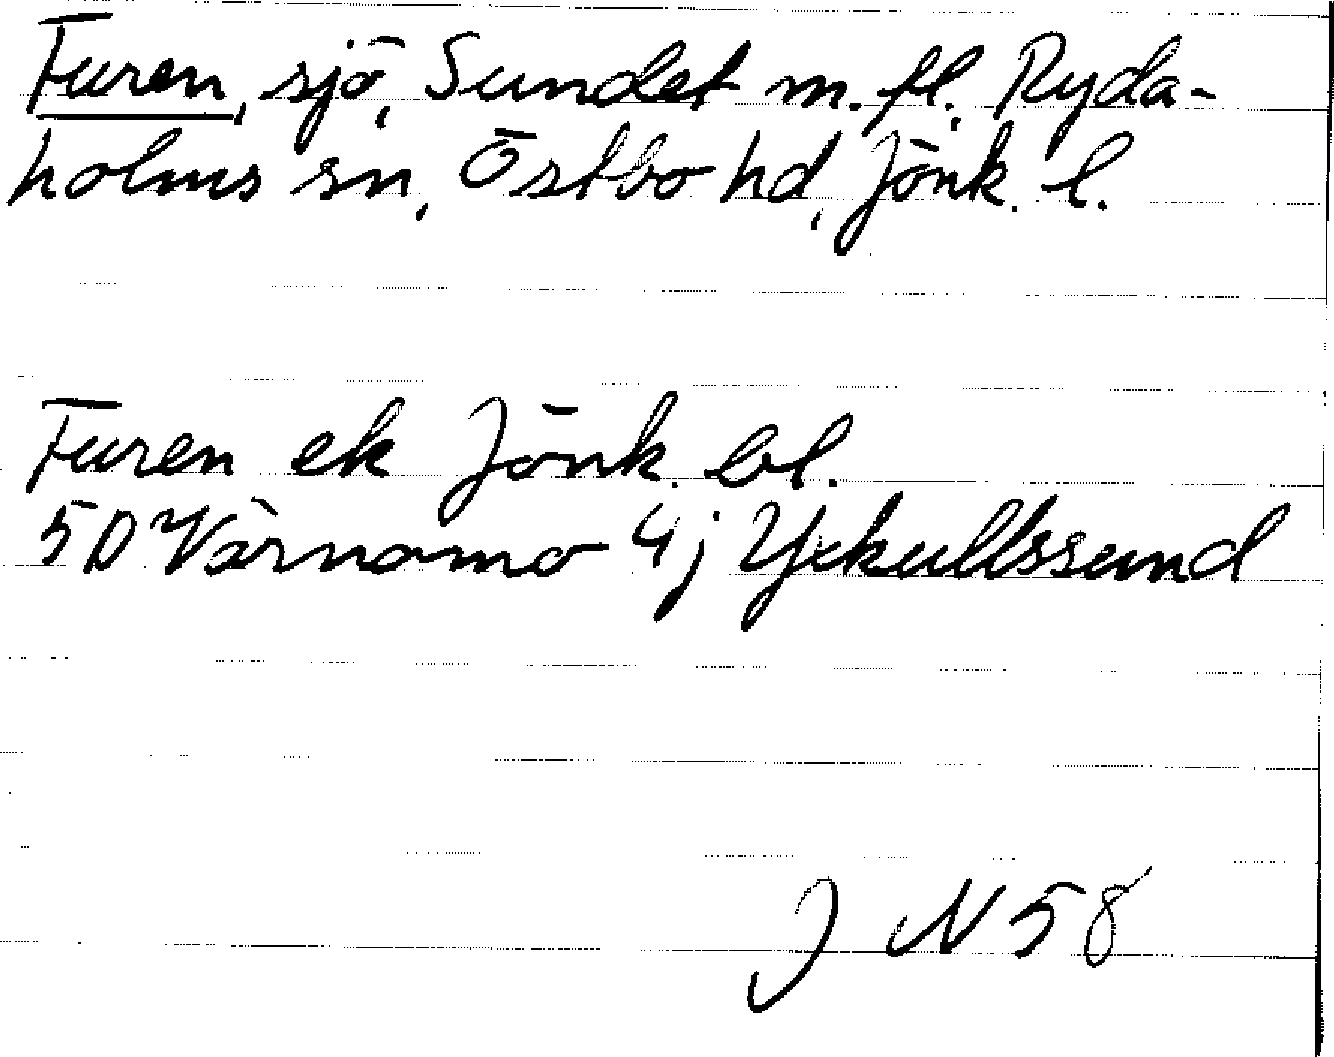 Furen, sjö, Sundet m. fl. Ryda-
holms sn, Östbo hd, Jönk. l.
Furen ek Jönk. bl.
5D Värnamo 4j Yxkullssund
J N 58